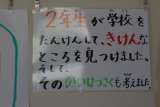 2年生が学校を
たんけんして、きけんな
ところを見つけました。
そして
そのかいけつさくも考えました